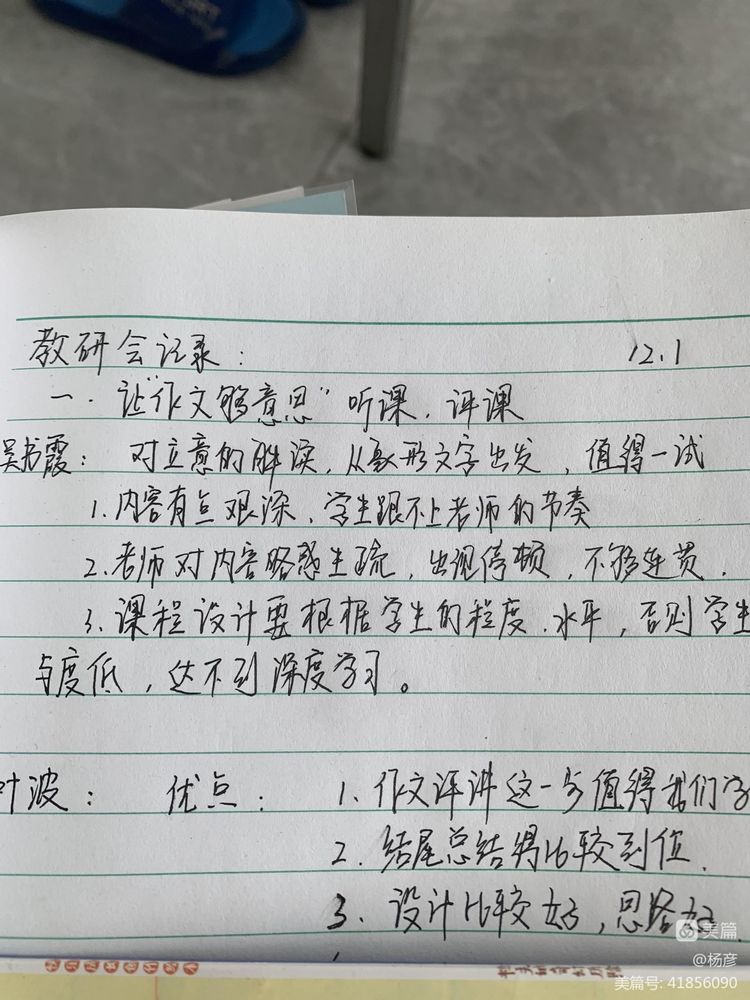 教研会记录： 12.1
一、让“作文够意思”听课、评课
吴书霞：对立意的解读，从象形文字出发，值得一试
1.内容有点艰深、学生跟不上老师的节奏
2.老师对内容略感生疏，出现停顿，不够连贯.
3.课程设计要根据学生的程度、水平，否则学生
与度低，达不到深度学习。
叶波：优点：1.作文评讲这一步值得我们学
2.结尾总结得比较到位.
3.设计比较好，思路好
美篇
@杨彦
美篇号: 41856090